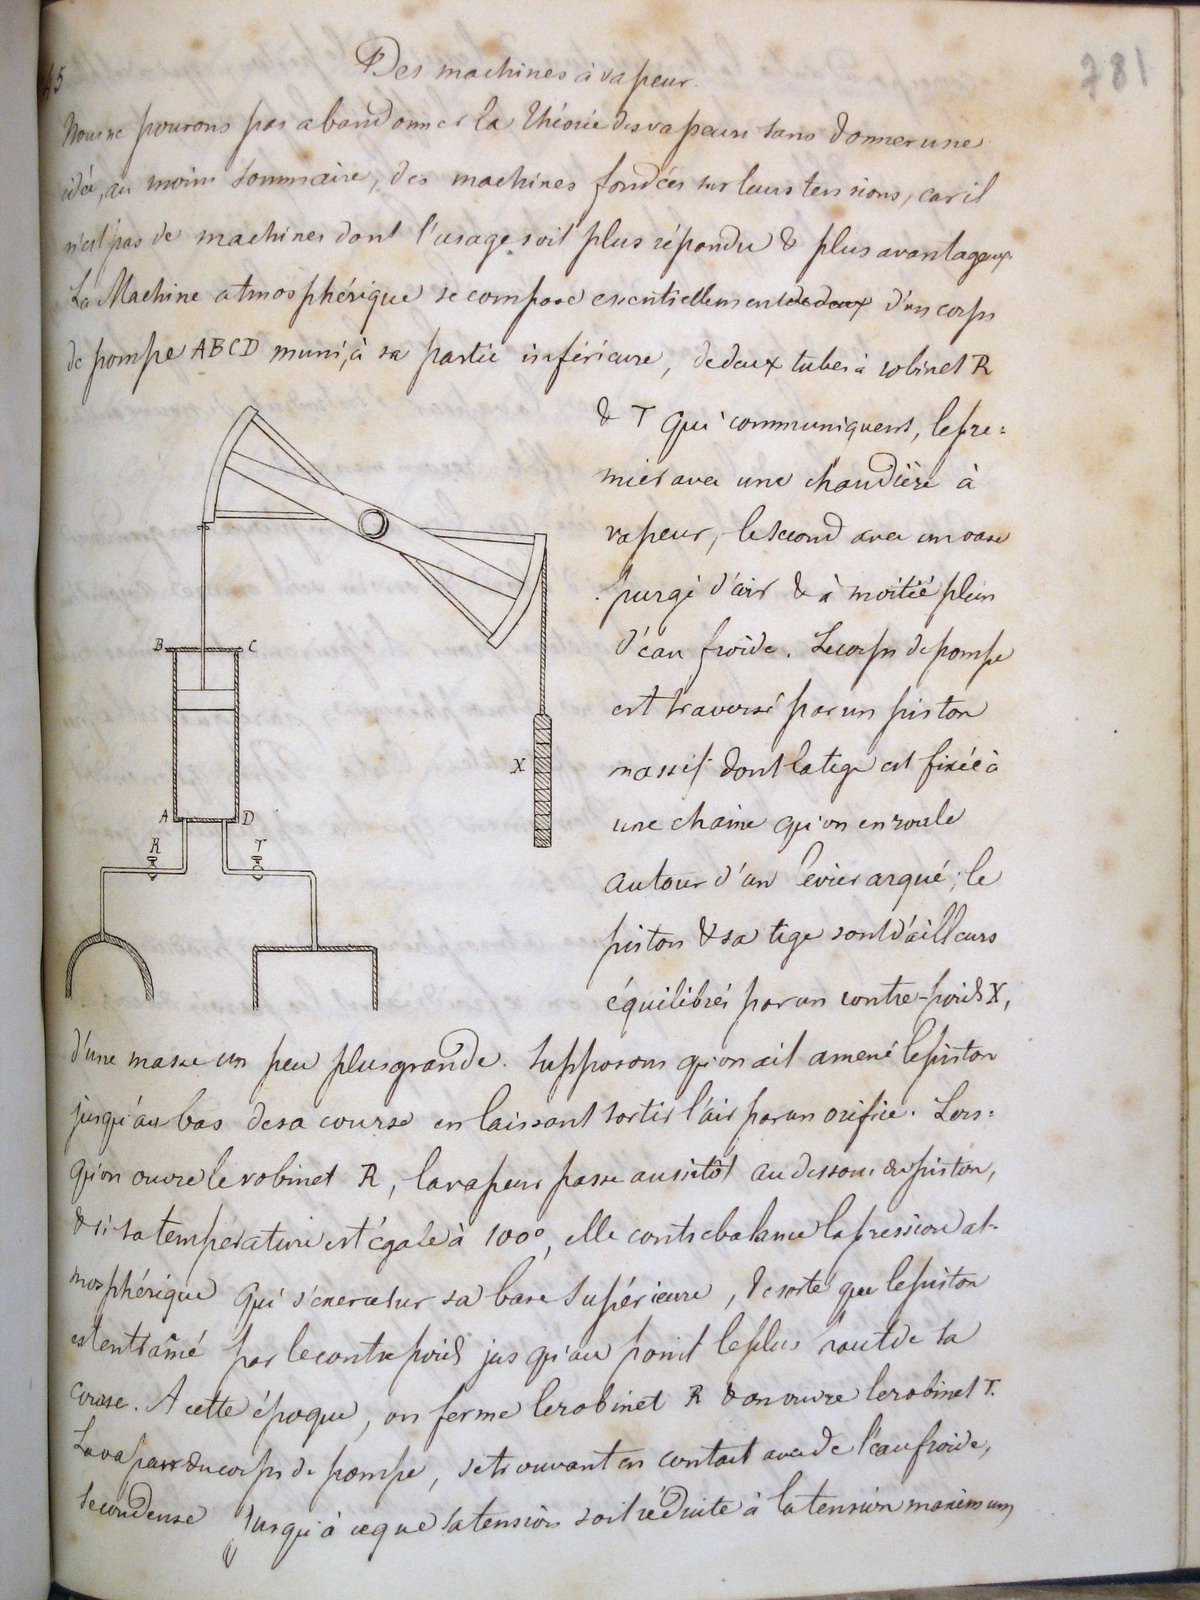 45
Des machines à vapeur.
781
Nous ne pourons pas abandonner la théorie des vapeurs sans donner une
idée, au moins sommaire, des machines fondées sur leurs tensions, car il
n'est pas de machines dont l'usage soit plus répandu & plus avantageux.
La Machine atmosphérique se compose essentiellement de deux d'un corps
de pompe ABCD muni, à sa partie inférieure, de deux tubes à robinet R
& T qui communiquent, le pre=
mier avec une chaudière à
vapeur, le second avec un vase
purgé d'air & à moitié plein
d'eau froide. Le corps de pompe
est traversé par un piston
massif dont la tige est fixée à
une chaine qu'on enroule
autour d'un levier arqué; le
piston & sa tige sont d'ailleurs
équilibrés par un contre-poids X,
B
C
X
A
D
R
T
d'une masse un peu plus grande. Supposons qu'on ait amené le piston
jusqu'au bas de sa course en laissant sortir l'air par un orifice. Lors=
qu'on ouvre le robinet R, la vapeur passe aussitôt au dessous du piston,
& si sa température est égale à 100°, elle contrebalance la pression at-
mosphérique qui s'exerce sur sa base supérieure, de sorte que le piston
est entrainé par le contrepoids jusqu'au point le plus haut de sa
course. A cette époque, on ferme le robinet R & on ouvre le robinet T.
La vapeur du corps de pompe, se trouvant en contact avec de l'eau froide,
se condense jusqu'à ce que sa tension soit réduite à la tension maximum